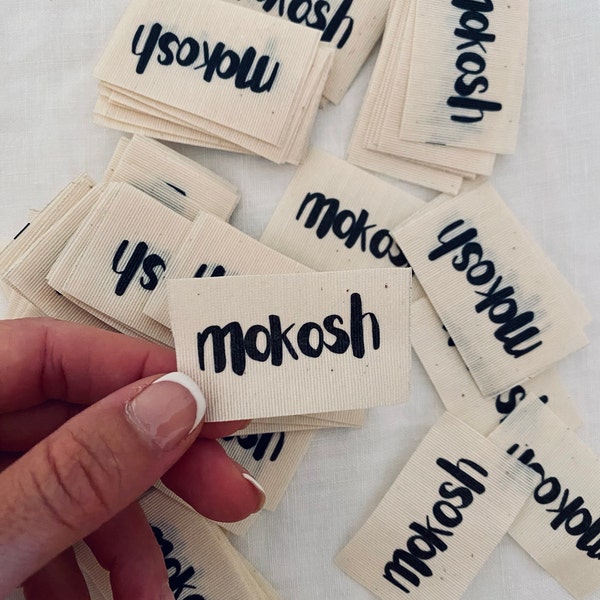 mokosh
mokosh
mokosh
mokosh
mokosh
mokosh
mokosh
mokosh